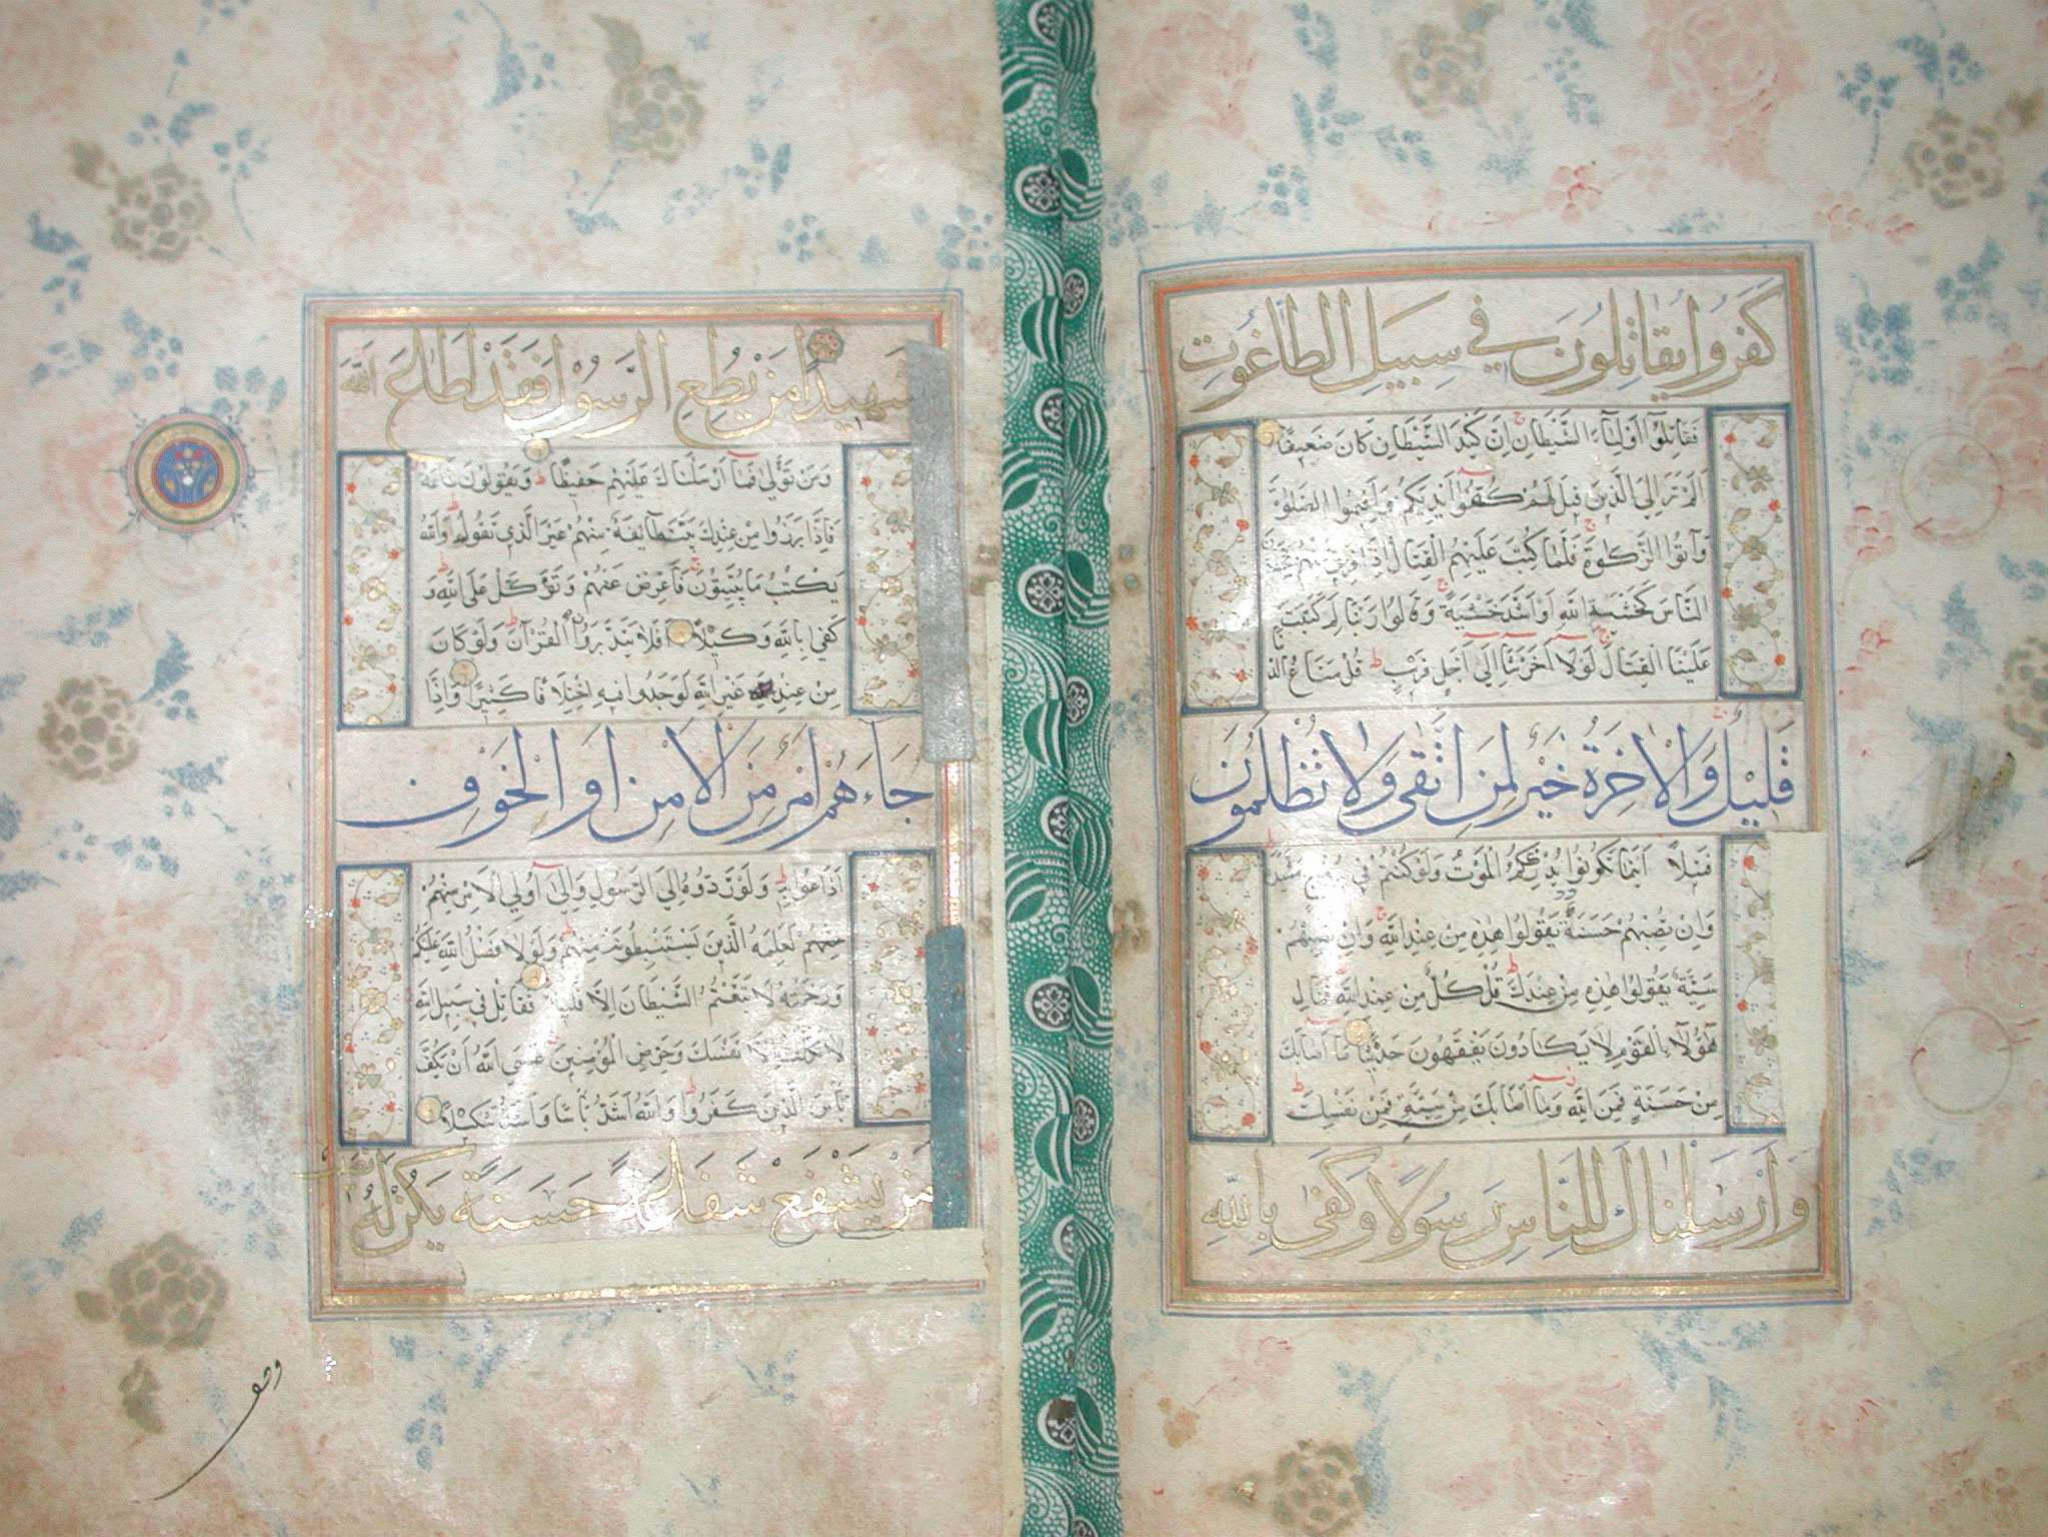 كَفَرُوا يُقَاتِلُونَ فِي سَبِيلِ الطَّاغُوتِ
فَقَاتِلُوا أَوْلِيَاءَ الشَّيْطَانِ إِنَّ كَيْدَ الشَّيْطَانِ كَانَ ضَعِيفًا
أَلَمْ تَرَ إِلَى الَّذِينَ قِيلَ لَهُمْ كُفُّوا أَيْدِيَكُمْ وَأَقِيمُوا الصَّلٰوةَ
وَآتُوا الزَّكٰوةَ فَلَمَّا كُتِبَ عَلَيْهِمُ الْقِتَالُ إِذَا فَرِيقٌ مِنْهُمْ يَخْشَوْنَ
النَّاسَ كَخَشْيَةِ اللَّهِ أَوْ أَشَدَّ خَشْيَةً وَقَالُوا رَبَّنَا لِمَ كَتَبْتَ
عَلَيْنَا الْقِتَالَ لَوْلَا أَخَّرْتَنَا إِلَى أَجَلٍ قَرِيبٍ قُلْ مَتَاعُ الدُّنْيَا
قَلِيلٌ وَالْآخِرَةُ خَيْرٌ لِمَنِ اتَّقَى وَلَا تُظْلَمُونَ
فَتِيلًا أَيْنَمَا تَكُونُوا يُدْرِكْكُمُ الْمَوْتُ وَلَوْ كُنْتُمْ فِي
وَإِنْ تُصِبْهُمْ حَسَنَةٌ يَقُولُوا هٰذِهِ مِنْ عِنْدِ اللَّهِ وَإِنْ تُصِبْهُمْ
سَيِّئَةٌ يَقُولُوا هٰذِهِ مِنْ عِنْدِكَ قُلْ كُلٌّ مِنْ عِنْدِ اللَّهِ فَمَالِ
هٰؤُلَاءِ الْقَوْمِ لَا يَكَادُونَ يَفْقَهُونَ حَدِيثًا مَا أَصَابَكَ
مِنْ حَسَنَةٍ فَمِنَ اللَّهِ وَمَا أَصَابَكَ مِنْ سَيِّئَةٍ فَمِنْ نَفْسِكَ
وَأَرْسَلْنَاكَ لِلنَّاسِ رَسُولًا وَكَفَى بِاللَّهِ
شَهِيدًا مَنْ يُطِعِ الرَّسُولَ فَقَدْ أَطَاعَ اللَّهَ
وَمَنْ تَوَلَّى فَمَا أَرْسَلْنَاكَ عَلَيْهِمْ حَفِيظًا وَيَقُولُونَ طَاعَةٌ
فَإِذَا بَرَزُوا مِنْ عِنْدِكَ بَيَّتَ طَائِفَةٌ مِنْهُمْ غَيْرَ الَّذِي تَقُولُ وَاللَّهُ
يَكْتُبُ مَا يُبَيِّتُونَ فَأَعْرِضْ عَنْهُمْ وَتَوَكَّلْ عَلَى اللَّهِ وَ
كَفَى بِاللَّهِ وَكِيلًا أَفَلَا يَتَدَبَّرُونَ الْقُرْآنَ وَلَوْ كَانَ
مِنْ عِنْدِ غَيْرِ اللَّهِ لَوَجَدُوا فِيهِ اخْتِلَافًا كَثِيرًا وَإِذَا
جَاءَهُمْ أَمْرٌ مِنَ الْأَمْنِ أَوِ الْخَوْفِ
أَذَاعُوا بِهِ وَلَوْ رَدُّوهُ إِلَى الرَّسُولِ وَإِلَى أُولِي الْأَمْرِ مِنْهُمْ
مِنْهُمْ لَعَلِمَهُ الَّذِينَ يَسْتَنْبِطُونَهُ مِنْهُمْ وَلَوْلَا فَضْلُ اللَّهِ عَلَيْكُمْ
وَرَحْمَتُهُ لَاتَّبَعْتُمُ الشَّيْطَانَ إِلَّا قَلِيلًا فَقَاتِلْ فِي سَبِيلِ اللَّهِ
لَا تُكَلَّفُ إِلَّا نَفْسَكَ وَحَرِّضِ الْمُؤْمِنِينَ عَسَى اللَّهُ أَنْ يَكُفَّ
بَأْسَ الَّذِينَ كَفَرُوا وَاللَّهُ أَشَدُّ بَأْسًا وَأَشَدُّ تَنْكِيلًا
مَنْ يَشْفَعْ شَفَاعَةً حَسَنَةً يَكُنْ لَهُ نَصِيبٌ
وقف